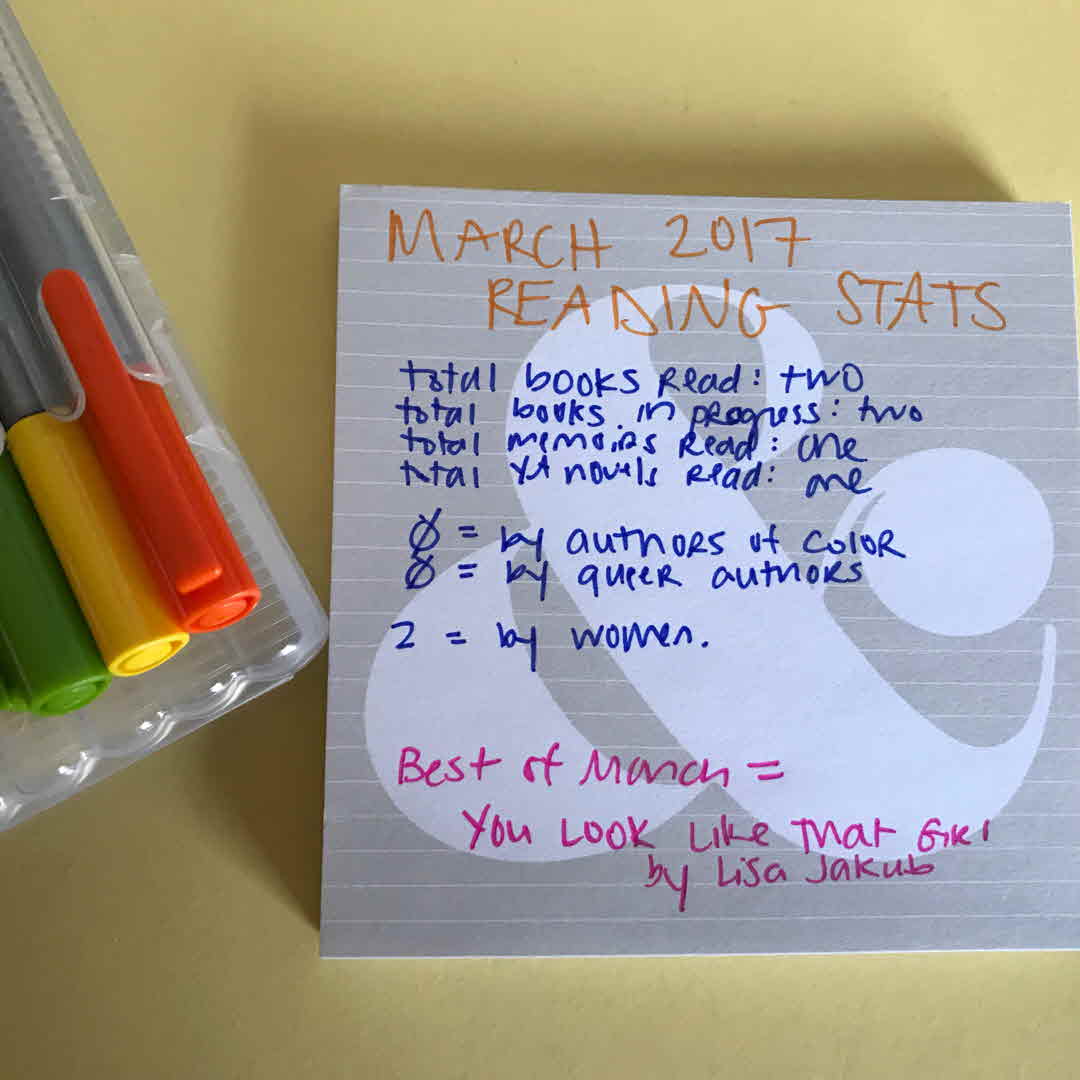 MARCH 2017
READING STATS
total books read: two
total books in progress: two
total memoirs read: one
total YA novels read: one
Ø = by authors of color
Ø = by queer authors
2 = by women.
Best of March =
You Look Like That Girl
by Lisa Jakub